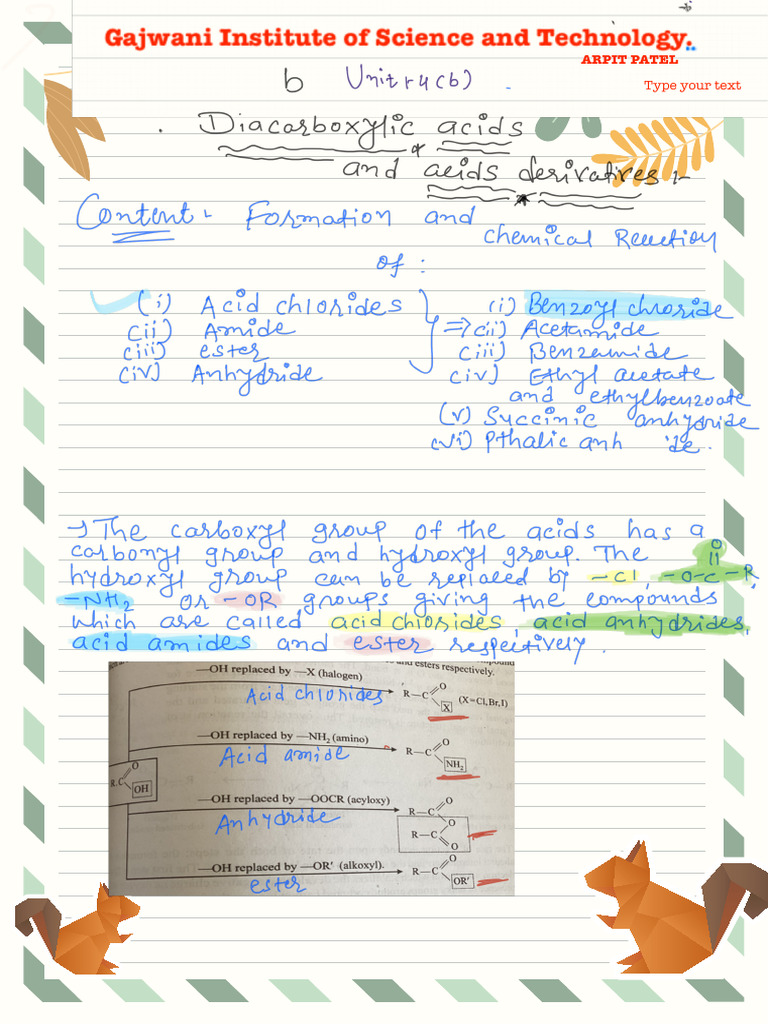 Gajwani Institute of Science and Technology.
ARPIT PATEL
b Unit 4(b)
Type your text
Diacarboxylic acids
and acids derivatives :-
Content :- Formation and
chemical Reaction
of :
(i) Acid chlorides (i) Benzoyl chloride
(ii) Amide => (ii) Acetamide
(iii) ester (iii) Benzamide
(iv) Anhydride (iv) Ethyl acetate
and ethylbenzoate
(v) Succinic anhydride
(vi) Pthalic anh ide.
→ The carboxyl group of the acids has a
carbonyl group and hydroxyl group. The O
hydroxyl group can be replaced by -Cl, -O-C-R,
-NH2 or -OR, groups giving the compounds
which are called acid chlorides, acid anhydrides,
acid amides and ester respectively.
and esters respectively.
—OH replaced by —X (halogen)
Acid chlorides R—C O X (X=Cl,Br,I)
—OH replaced by —NH2 (amino)
Acid amide R—C O NH2
R.C O OH
—OH replaced by —OOCR (acyloxy)
Anhydride R—C O O R—C O
—OH replaced by —OR′ (alkoxyl).
ester R—C O OR′